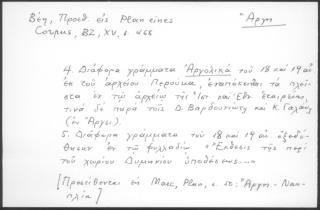 Βέη, Προσθ. εἰς Plan eines "Ἄργη
Corpus, BZ, XV, σ. 466
4. Διάφορα γράμματα Ἀργολικά τοῦ 18 καί 19 αἰ
ἐκ τοῦ ἀρχείου Περούκα, ἐναπόκεινται τά πλεῖ-
στα ἐν τῷ ἀρχείῳ τῆς Ἱστ καί Ἐθν. Ἑταιρείας,
τινά δέ παρά τοῖς Δ. Βαρδουνιώτῃ καί Κ.
(ἐν Ἄργει).
5. Διάφορα γράμματα τοῦ 18 καί 19 αἰ. ἐξεδό-
θησαν ἐν τῷ φυλλαδίῳ «Ἔκθεσις τῆς περί
τοῦ χωρίου ὑποθέσεως...»
[Προστίθενται εἰς Marc, Plan, σ. : "Ἄργη - Ναυ-
πλία]